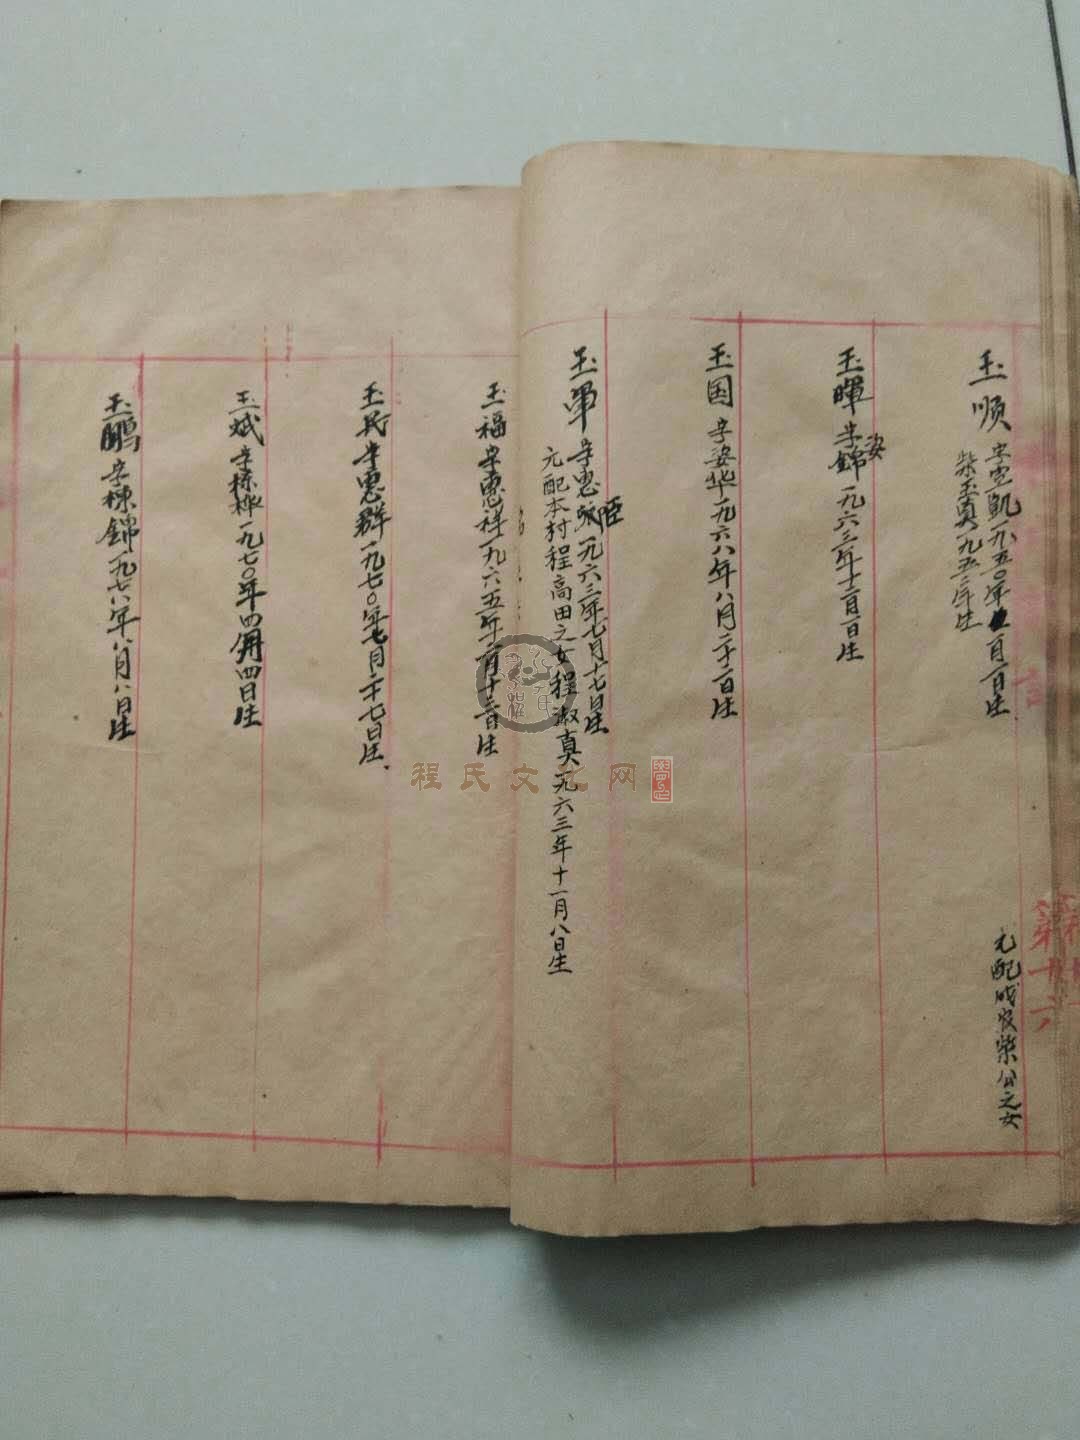 玉顺 字宪凯一九五〇年 月一日生
柴玉真一九五二年生
元配城后柴公之女
玉暉 字錦姿一九六三年十二月一日生
玉国 字姿华一九六八年八月二十二日生
玉軍 字惠 一九六三年七月十七日生
元配本村程高田之女程淑真一九六三年十一月八日生
玉福 字惠祥一九六五年十二月十三日生
玉民 字惠群一九七〇年七月二十七日生
玉斌 字棟樺一九七〇年四月四日生
玉鵬 字棟錦一九七八年八月八日生
第十六
程氏文化网